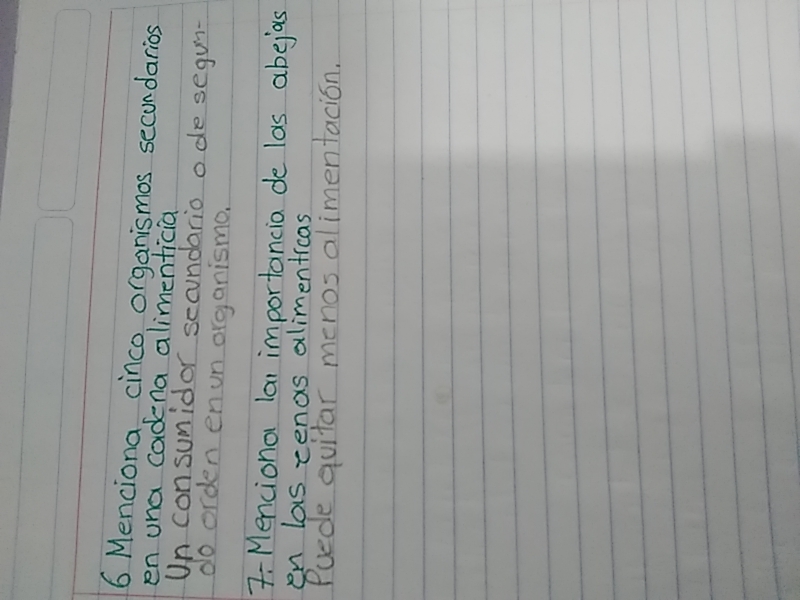 6 Menciona cinco organismos secundarios
en una cadena alimenticia
Un consumidor secundario o de segun-
do orden en un organismo.
7.- Menciona la importancia de las abejas
en las cenas alimentcas
Puede quitar menos alimentación.